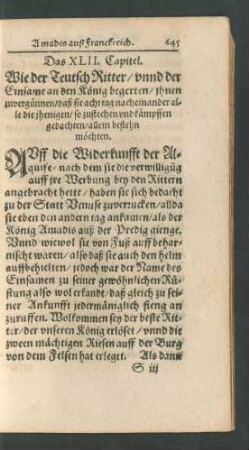 Amadis auß Franckreich. 645
Das XLII. Capitel.
Wie der Teutsch Ritter / vnnd der
Einsame an den König begerten / jhnen
zuvergünnen / daß sie acht tag nacheinander al-
le die jhenigen / so zustechen vnd kämpffen
gedachten / allein bestehn
möchten.
AVff die Widerkunfft der Al-
quife / nach dem sie die verwilligūg
auff jre Werbung bey den Rittern
angebracht hette / haben sie sich bedacht
zu der Statt Venusc zuverrucken / allda
sie eben den andern tag ankamen / als der
König Amadis auß der Predig gienge.
Vnnd wiewol sie von Fuß auff behar-
nischt waren / also daß sie auch den helm
auffbehielten / jedoch war der Name des
Einsamen zu seiner gewöhnlichen Rü-
stung also wol erkandt / daß gleich zu sei-
ner Ankunfft jedermänniglich fieng an
zuruffen. Wolkommen sey der beste Rit-
ter / der vnseren König erlöset / vnnd die
zween mächtigen Riesen auff der Burg
von dem Felsen hat erleget. Als dann
S iij